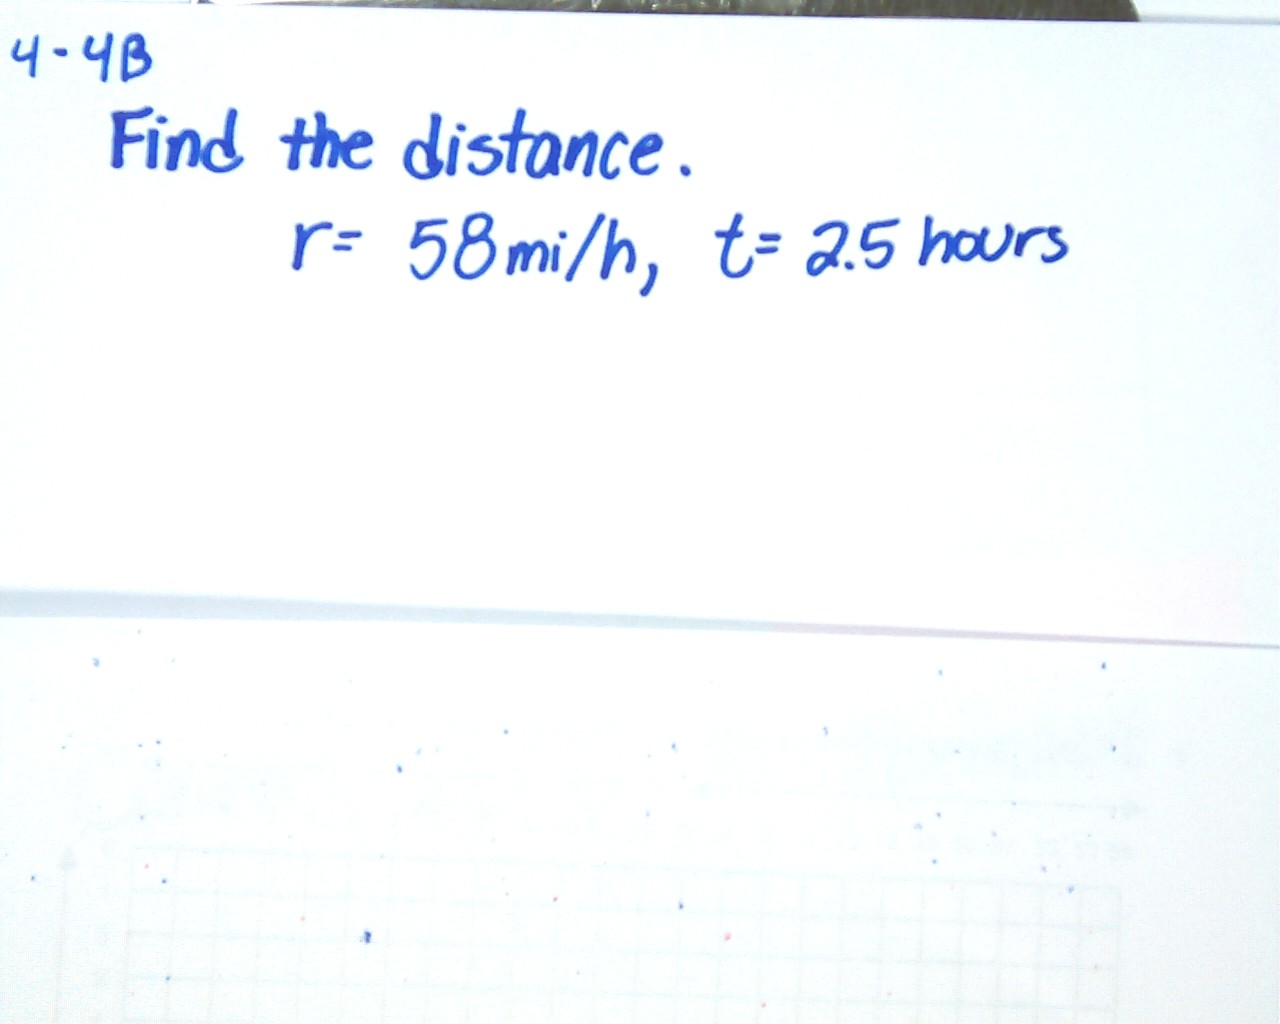 4-4B
Find the distance.
r= 58mi/h, t= 2.5 hours